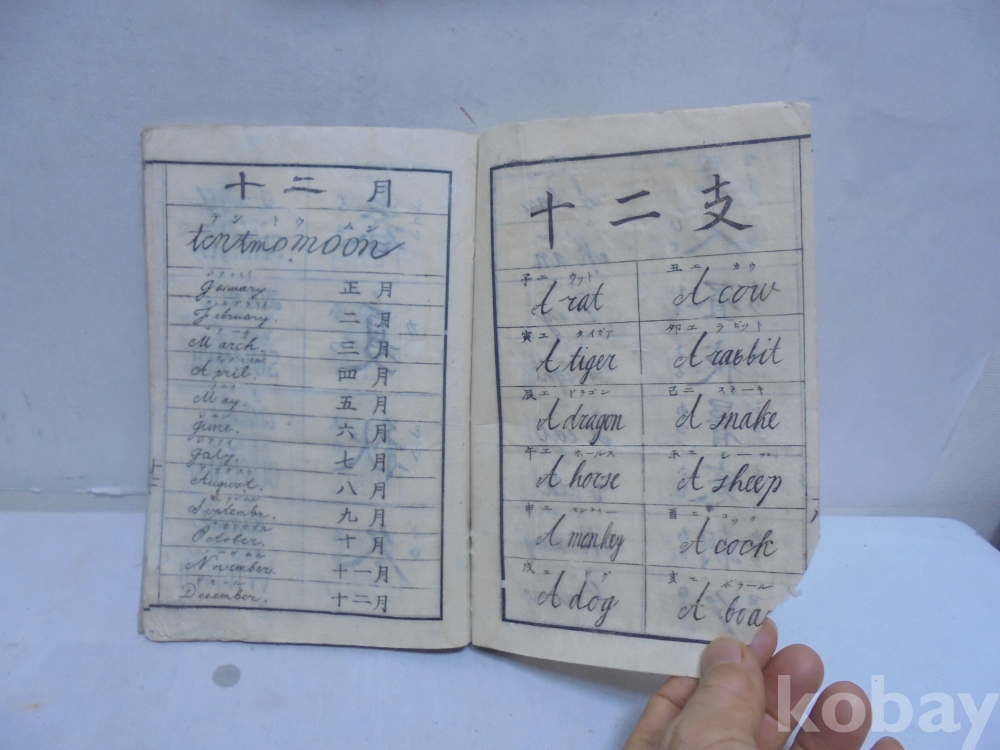 十二月
テントウムン
tentmomoon
January 正月
February. 二月
March. 三月
April. 四月
May. 五月
June. 六月
July. 七月
August. 八月
Septembr. 九月
October. 十月
November. 十一月
Desember. 十二月
十二支
子エ ウット 丑エ カウ
A rat A cow
寅エ タイガア 卯エ ラビット
A tiger A rabbit
辰エ ドラゴン 巳ニ スネーキ
A dragon A snake
午エ ホールス 未エ シープ
A horse A sheep
申エ モンキー 酉エ コック
A monkey A cock
戌エ ドグ 亥エ ボラール
A dog A boa
kobay